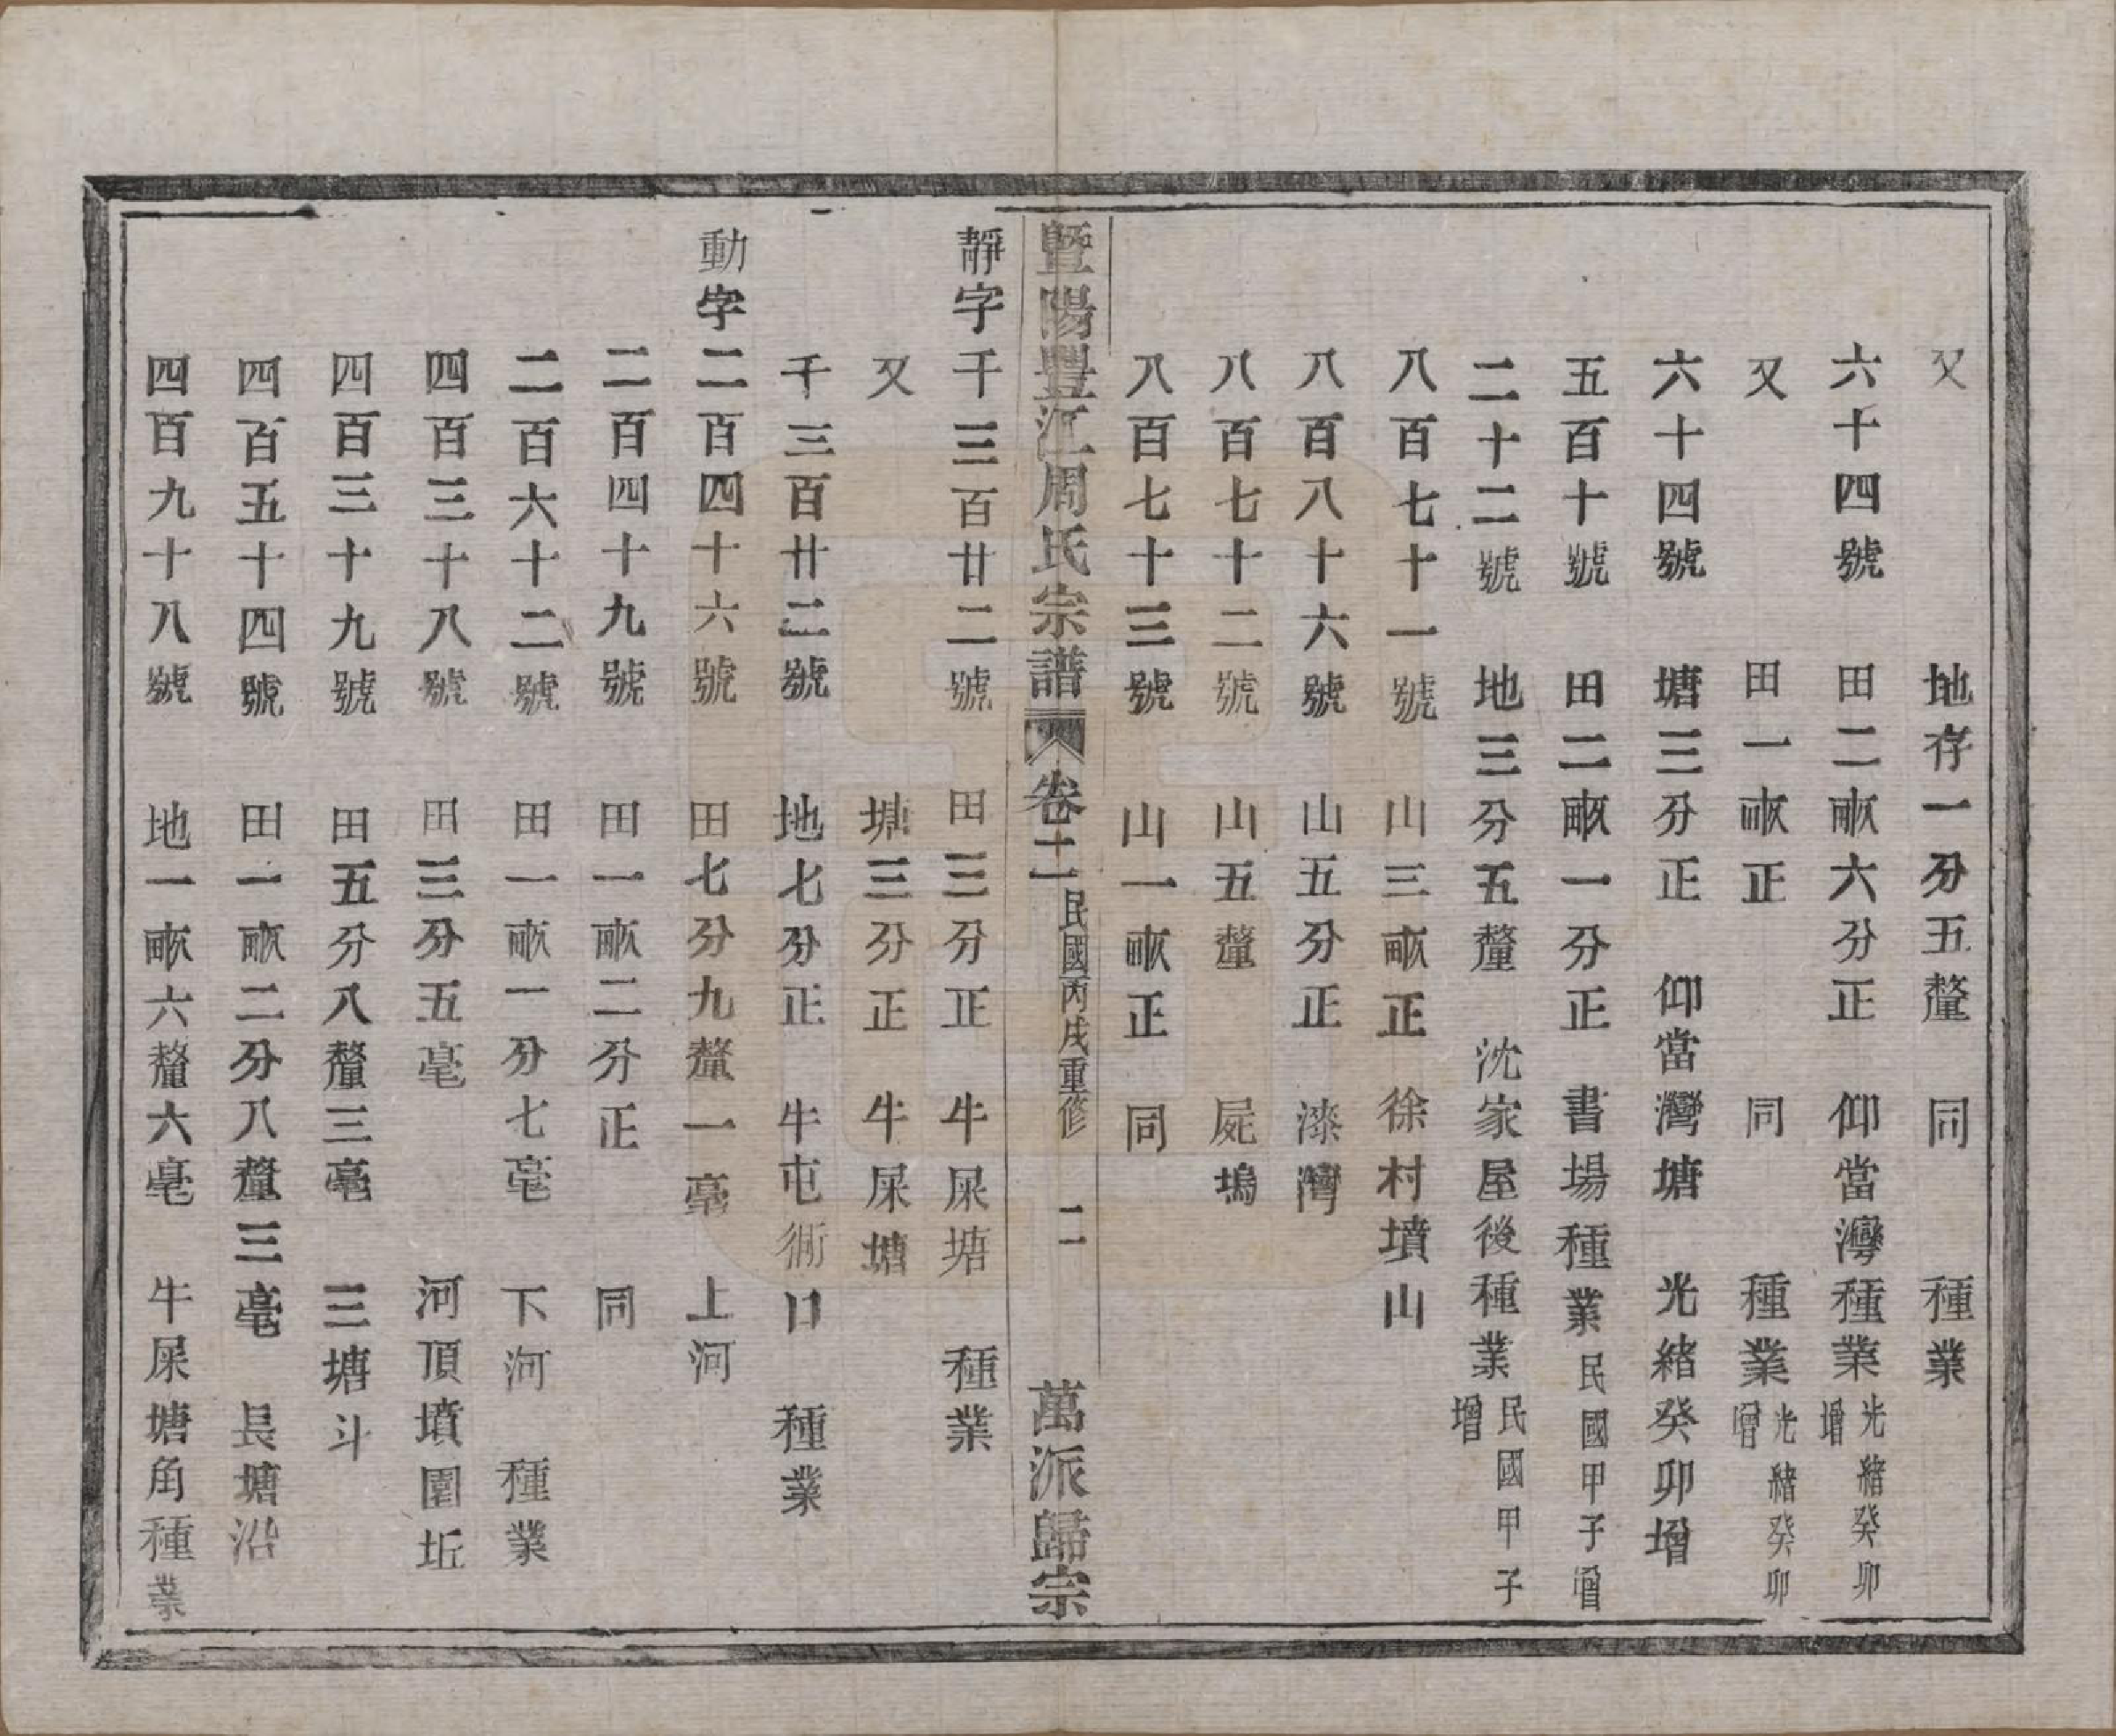 又　地存一分五釐　同　種業
六十四號　田二畝六分正　仰當灣種業光緒癸卯增
又　田一畝正　同　種業光緒癸卯增
六十四號　塘三分正　仰當灣塘　光緒癸卯增
五百十號　田二畝一分正　書場種業民國甲子增
二十二號　地三分五釐　沈家屋後種業民國甲子增
八百七十一號　山三畝正　徐村墳山
八百八十六號　山五分正　漆灣
八百七十二號　山五釐　屍塢
八百七十三號　山一畝正　同
暨陽豐江周氏宗譜　卷二　民國丙戌重修　二　萬派歸宗
靜字千三百廿二號　田三分正　牛屎塘　種業
又　塘三分正　牛屎塘
千三百廿二號　地七分正　牛屯衕口　種業
動字二百四十六號　田七分九釐一毫　上河
二百四十九號　田一畝二分正　同
二百六十二號　田一畝一分七毫　下河　種業
四百三十八號　田三分五毫　河頂墳圍坵
四百三十九號　田五分八釐三毫　三塘斗
四百五十四號　田一畝二分八釐三毫　長塘沿
四百九十八號　地一畝六釐六毫　牛屎塘角種業